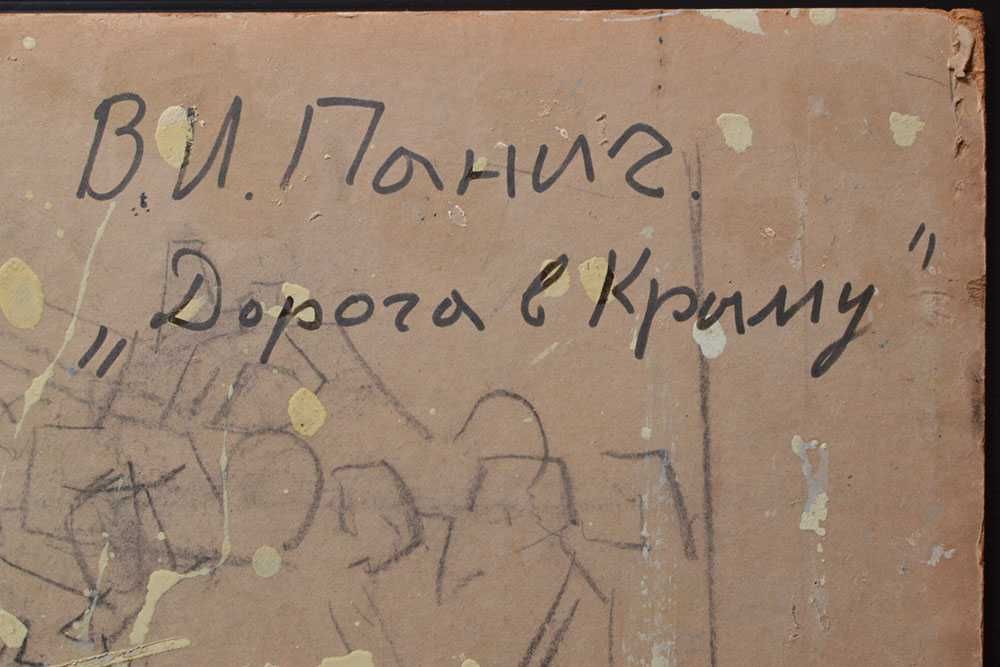 В.И. Паниг.
„Дорога в Крыму"